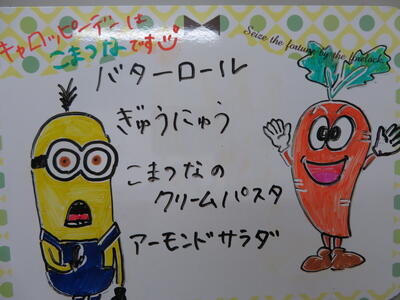 キャロッピーデーは
こまつなです
Seize the fortune by the forelock.
バターロール
ぎゅうにゅう
こまつなの
クリームパスタ
アーモンドサラダ